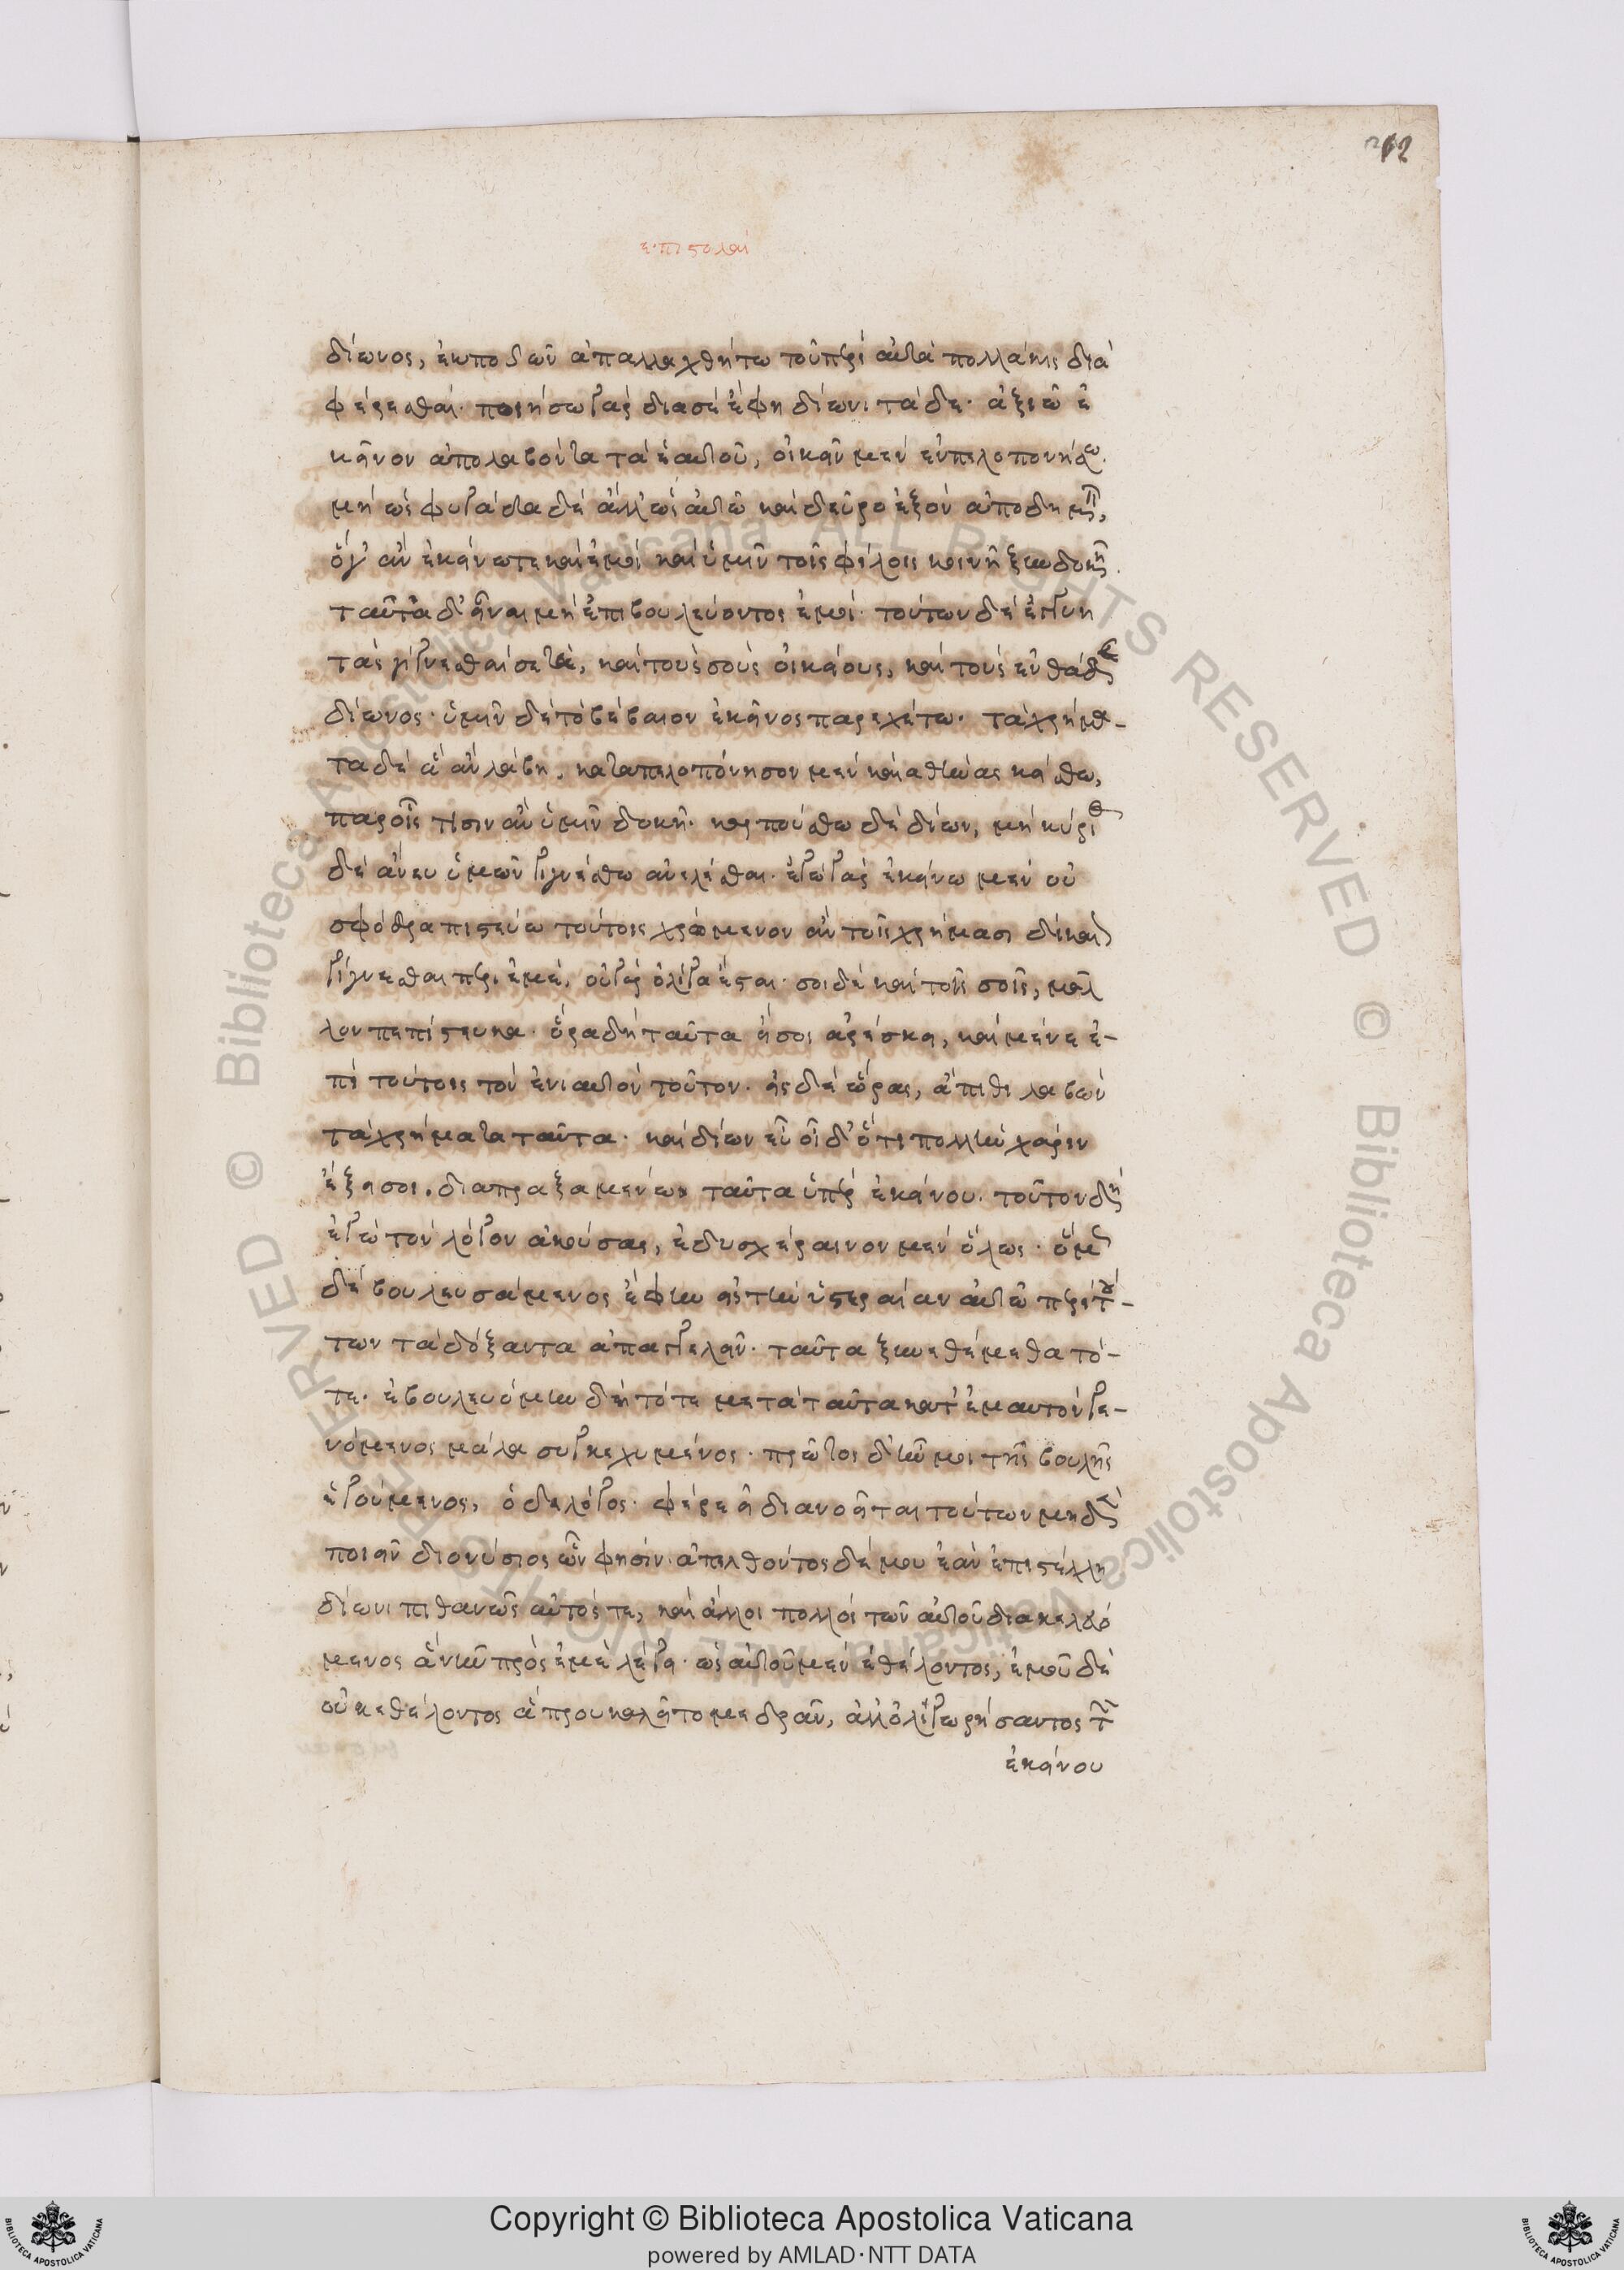 212
ἐπιστολαί
δίωνος, ἐκποδὼν ἀπαλλαχθήτω τοῦ περὶ αὐτὰ πολλάκις δια
φέρεσθαι. ποιήσω γὰρ διὰ σὲ ἔφη δίωνι τάδε. ἀξιῶ ἐ
κεῖνον ἀπολαβόντα τὰ ἑαυτοῦ, οἰκεῖν μὲν ἐν πελοποννήσω.
μὴ ὡς φυγάδα δὲ ἀλλ' ὡς αὐτῶ καὶ δεῦρο ἐξὸν ἀποδημεῖν,
ὅταν ἐκείνω τε καὶ ἐμοὶ καὶ ὑμῖν τοῖς φίλοις κοινῆ ξυνδοκῆ.
ταῦτα δ' εἶναι μὴ ἐπιβουλεύοντος ἐμοί. τούτων δὲ ἐγγυη
τὰς γίγνεσθαι σέ τε, καὶ τοὺς σοὺς οἰκείους, καὶ τοὺς ἐνθάδε
δίωνος. ὑμῖν δὲ τὸ βέβαιον ἐκεῖνος παρεχέτω. τὰ χρήμα-
τα δὲ ἃ ἂν λάβη, κατὰ πελοπόννησον μὲν καὶ ἀθήνας κείσθω,
παρ' οἷς τισιν ἂν ὑμῖν δοκῆ. καρπούσθω δὲ δίων, μὴ κύριος
δὲ ἄνευ ὑμῶν γιγνέσθω ἀνελέσθαι. ἐγὼ γὰρ ἐκείνω μὲν οὐ
σφόδρα πιστεύω τούτοις χρώμενον ἂν τοῖς χρήμασι δίκαιον
γίγνεσθαι περὶ ἐμέ. οὐ γὰρ ὀλίγα ἔσται. σοὶ δὲ καὶ τοῖς σοῖς, μᾶλ
λον πεπίστευκα. ὅρα δὴ ταῦτα εἴ σοι ἀρέσκει, καὶ μένε ἐ-
πὶ τούτοις τὸν ἐνιαυτὸν τοῦτον. εἰς δὲ ὥρας, ἄπιθι λαβὼν
τὰ χρήματα ταῦτα. καὶ δίων εὖ οἶδ' ὅτι πολλὴν χάριν
ἕξει σοι, διαπραξαμένω ταῦτα ὑπὲρ ἐκείνου. τοῦτον δὴ
ἐγὼ τὸν λόγον ἀκούσας, ἐδυσχέραινον μὲν ὅλως. ὅμως
δὲ βουλευσάμενος ἔφην εἰς τὴν ὑστεραίαν αὐτῶ περὶ τού-
των τὰ δόξαντα ἀπαγγελεῖν. ταῦτα ξυνεθέμεθα τό-
τε. ἐβουλευόμην δὴ τότε μετὰ ταῦτα κατ' ἐμαυτὸν γε-
νόμενος μάλα συγκεχυμένος. πρῶτος δ' ἦν μοι τῆς βουλῆς
ἡγούμενος, ὁ δὲ λόγος. φέρε εἰ διανοεῖται τούτων μηδὲν
ποιεῖν διονύσιος ὧν φησίν. ἀπελθόντος δέ μου ἐὰν ἐπιστέλλη
δίωνι πιθανῶς αὐτός τε, καὶ ἄλλοι πολλοὶ τῶν αὐτοῦ διακελευό
μενος ἃ νῦν πρὸς ἐμὲ λέγει. ὡς αὐτοῦ μὲν ἐθέλοντος, ἐμοῦ δὲ
οὐκ ἐθέλοντος ἃ προυκαλεῖτό με δρᾶν, ἀλλ' ὀλιγωρήσαντος τῶν
ἐκείνου
Copyright © Biblioteca Apostolica Vaticana
powered by AMLAD·NTT DATA